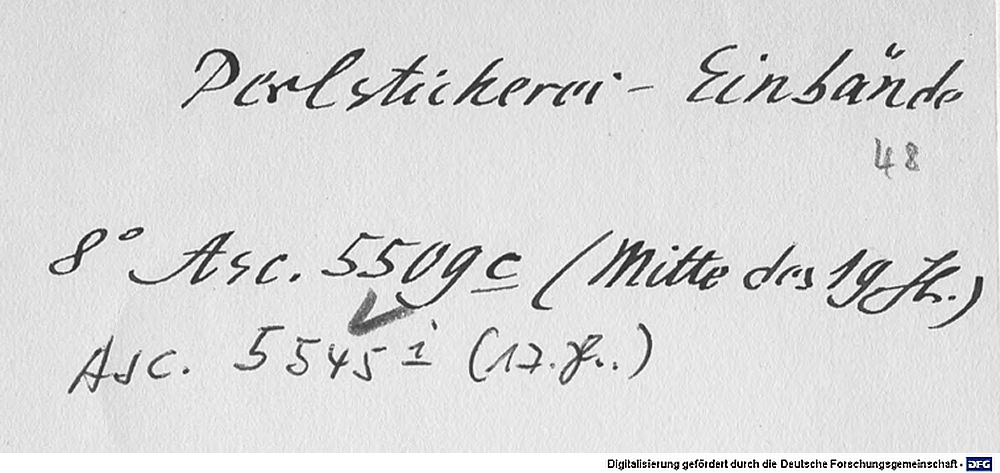 Perlstickerei - Einbände
48
8° Asc. 5509c (Mitte des 19 Jh.)
Asc. 5545 i (17. Jh.)
Digitalisierung gefördert durch die Deutsche Forschungsgemeinschaft - DFG